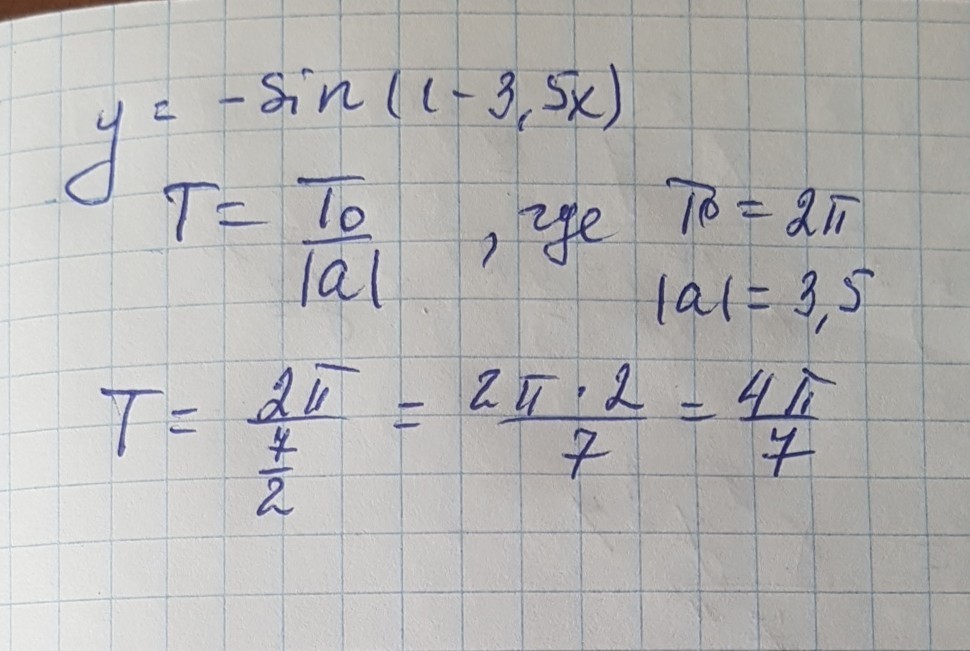 y = -sin(1-3,5x)
T = T₀/|a| , где T₀ = 2π
|a| = 3,5
T = 2π/(7/2) = 2π·2/7 = 4π/7